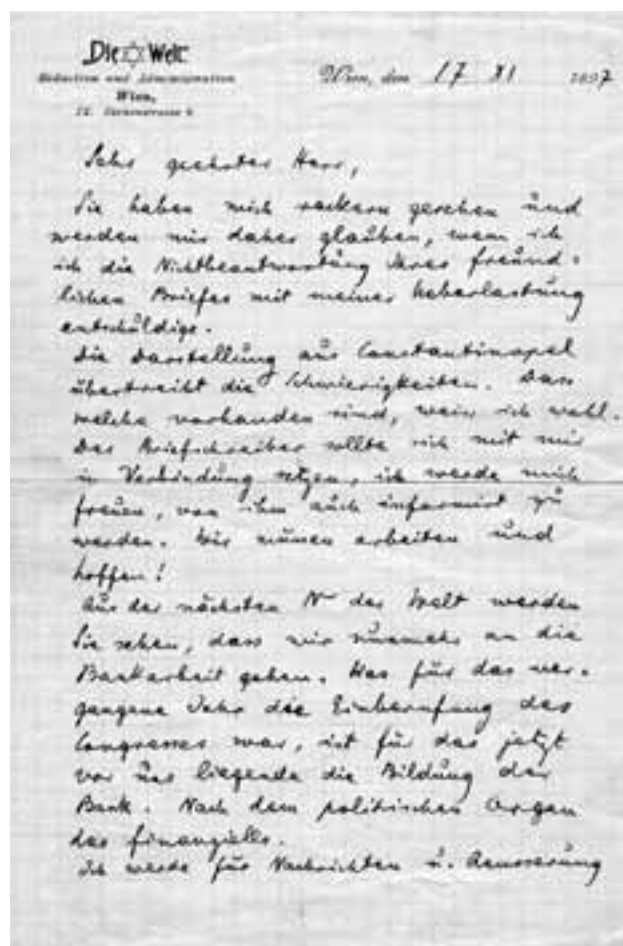 Die Welt
Redaction und Administration
Wien,
IX.
Wien, den 17 XI 1897
Sehr geehrter Herr,
Sie haben mich rackern gesehen und
werden mir daher glauben, wenn ich
ich die Nichtbeantwortung Ihres freund-
lichen Briefes mit meiner Ueberlastung
entschuldige.
Die Darstellung aus Constantinopel
übertreibt die Schwierigkeiten. Dass
welche vorhanden sind, weiss ich wohl.
Der Briefschreiber sollte sich mit mir
in Verbindung setzen, ich werde mich
freuen, von ihm auch informirt zu
werden. Wir müssen arbeiten und
hoffen!
Aus der nächsten Nr der Welt werden
Sie sehen, dass wir nunmehr an die
Bankarbeit gehen. Was für das ver-
gangene Jahr die Einberufung des
Congresses war, ist für das jetzt
vor uns liegende die Bildung der
Bank. Nach dem politischen Organ
das finanzielle.
Ich werde für Nachrichten u. Aeusserung